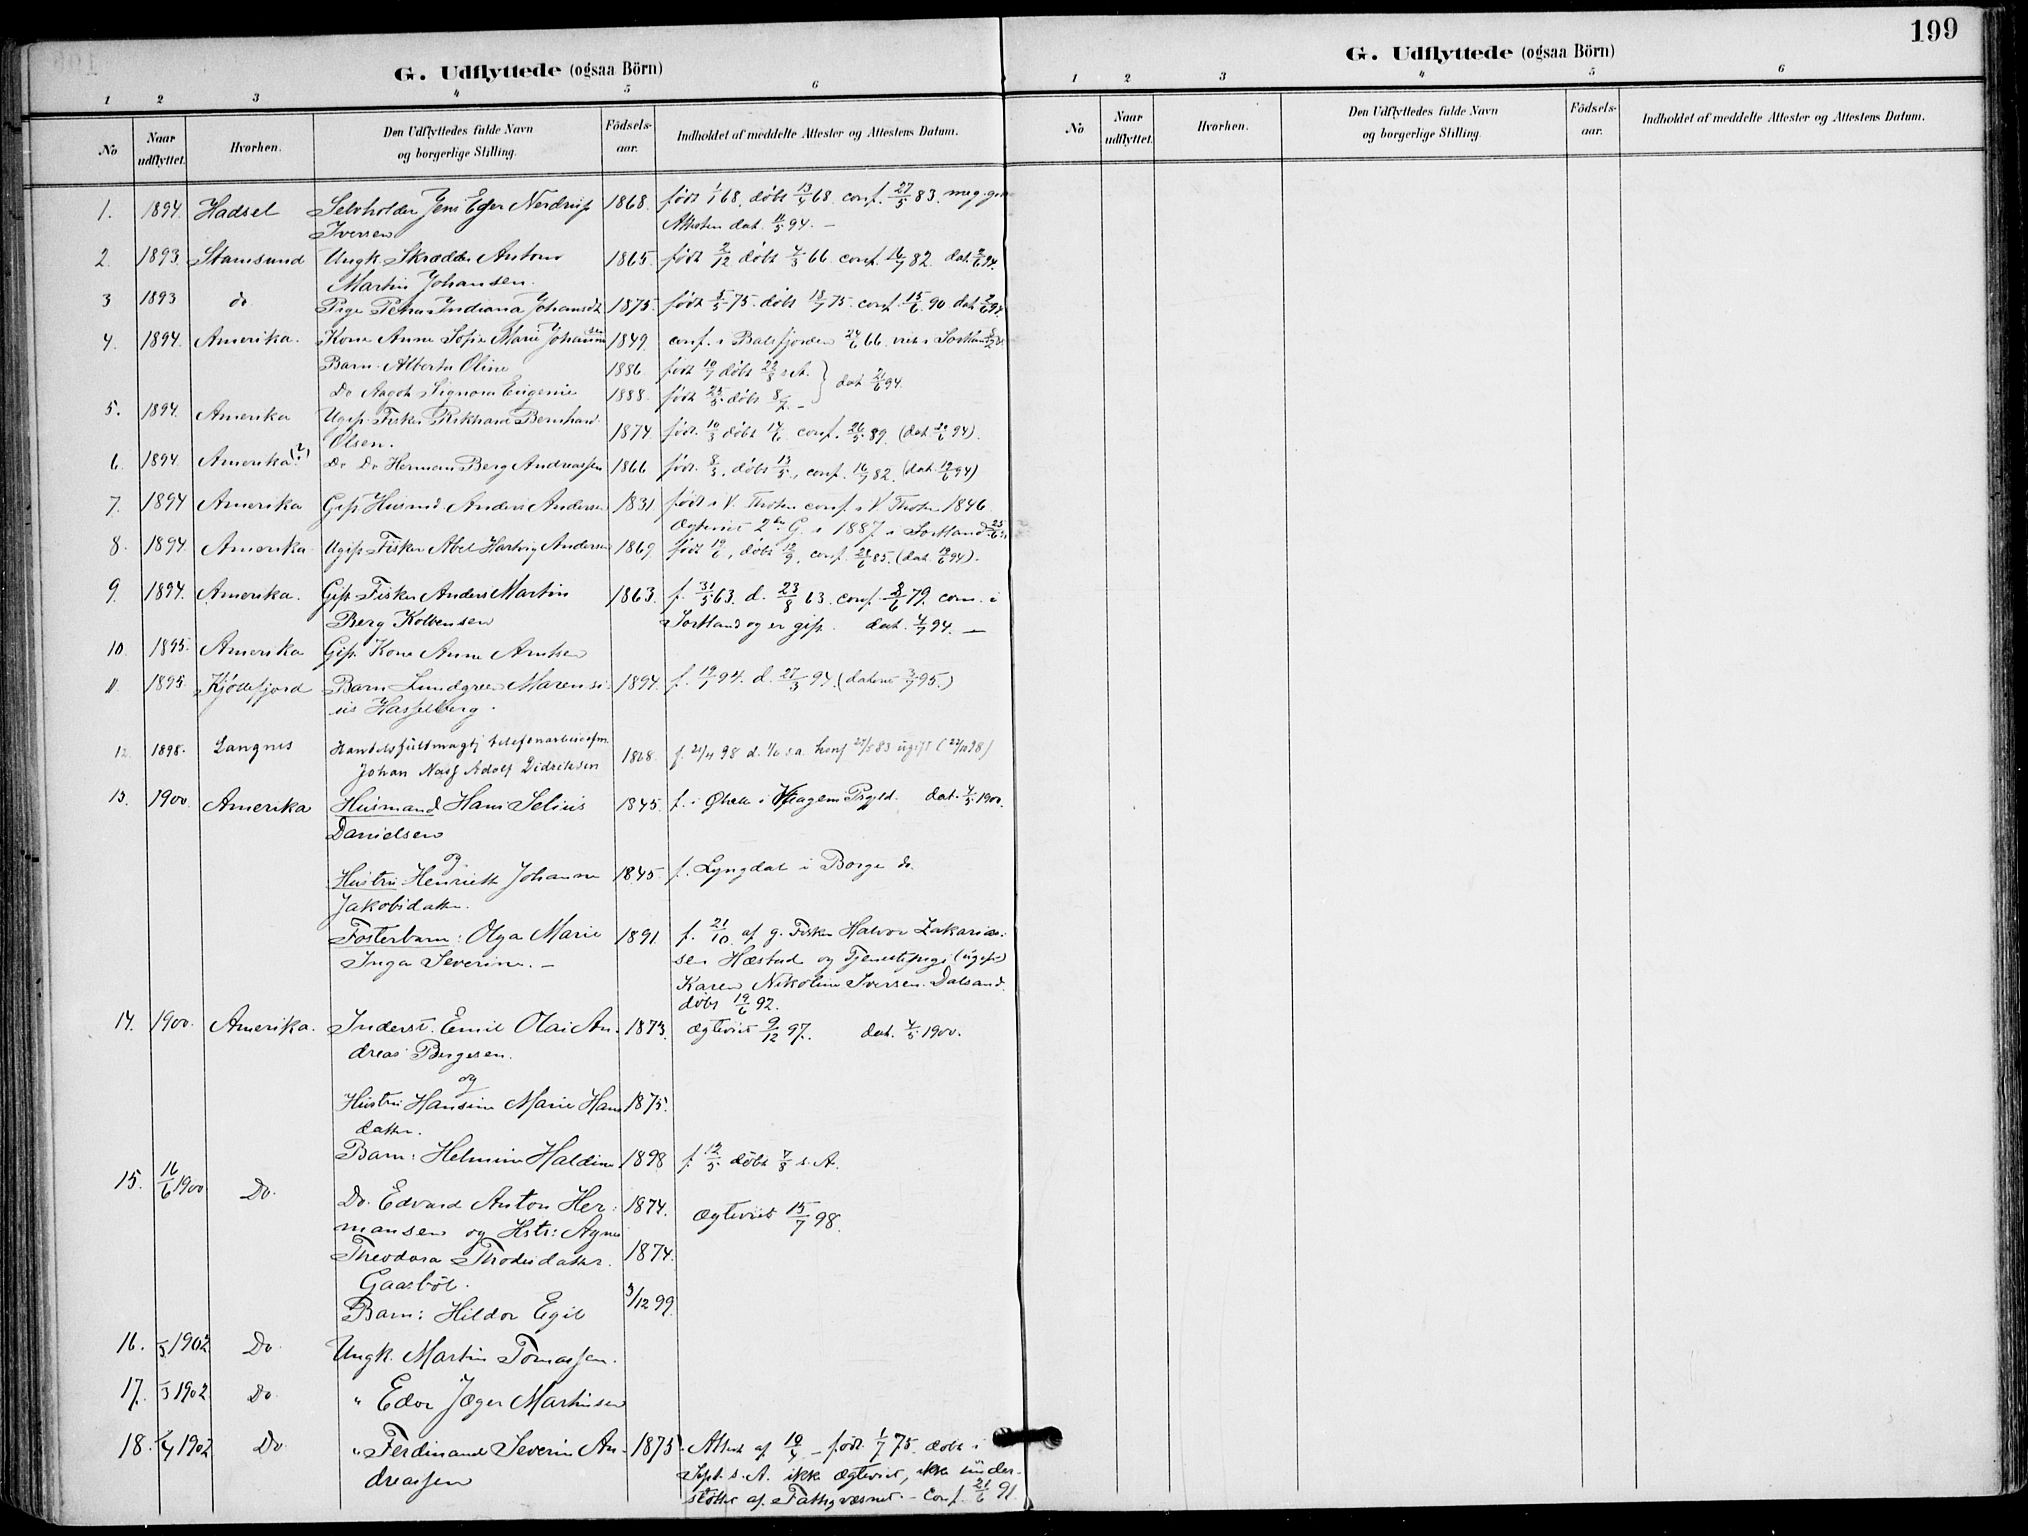 199
G. Udflyttede (ogsaa Börn)
1 2 3 4 5 6
No
Naar udflyttet.
Hvorhen.
Den Udflyttedes fulde Navn og borgerlige Stilling.
Födsels-aar.
Indholdet af meddelte Attester og Attestens Datum.
1. 1894. Hadsel Selvholder Jens Eger Nordrup 1868. født 1/1 68, døbt 13/4 68 conf. 27/5 83. meg. god
Iversen Attesten dat. 11/5 94. —
2. 1893. Stamsund Ungk. Skrædder Anton 1865. født 2/12 døbt 4/3 66 conf. 16/7 82. dat. 2/6 94.
Martin Johansen.
3 1893 do Pige Petra Indiana Johansdt 1875. født 5/5 75. døbt 18/7 75. conf. 15/6 90 dat. 2/6 94.
4. 1894. Amerika. Kone Anne Sofie Marie Johansen 1849. conf. i Balsfjorden 24/6 66
Barn Alberta Oline 1886. født 10/7 døbt 22/8 s. A.
Do Aagot Signora Eugenie 1888. født 25/5 døbt 8/7. – dat. 2/6 94.
5. 1894. Amerika Ugift Fisker Rikhard Bernhard
Olsen. 1874. født. 10/3 døbt 14/6 conf. 26/5 89. (dat. 12/6 94).
6. 1894. Amerika (?) Do Do Herman Berg Andreassen 1866 født. 8/3, døbt 13/5, conf. 16/7 82. (dat. 12/6 94)
7. 1894 Amerika Gift Husmd. Anders Andersen 1831. født i V. Thoten conf. i V. Thoten 1846
Ægteviet 2den G. i 1887 i Sortland
8. 1894. Amerika. Ugift Fisker Abel Hartvig Andersen 1869. født 19/6, døbt 12/9, conf. 28/6 85. (dat. 12/6 94).
9. 1894. Amerika. Gift Fisker Anders Martin 1863. f. 31/5 63. d. 23/8 63. conf. 8/6 79. com. i
Berg Kolbensen Sortland og er gift. dat. 4/7 94. —
10. 1895. Amerika Gift Kone Anne Arntsen
11 1895 Kjøllefjord Barn Lundgren Marensi- 1894. f. 19/1 94. d. 27/3 94. (dateret 3/7 95.)
us Hasselberg.
12. 1898. Langnes Handelsfuldmægtig Telefonarbeidsfm.
Johan Nasf Adolf Didriksen 1868. f. 21/4 98 d. 1/6 s.a. konf 27/5 83 ugift (27/10 98)
13. 1900. Amerika Husmand Hans Selius 1845. f. i Øhelle i Vaagens Prgld. dat. 4/5 1900.
Danielsen
og
Hustru Henriette Johanne 1845. f. Lyngdal i Borge do.
Jakobsdatter.
Fosterbarn: Olga Marie 1891. f. 21/10 af g. Fisker Halvor Zakarias-
Inga Severine. — sen Hæstad og Tjenestepige (ugift)
Karen Nikoline Iversen. Dalsand.
døbt 19/6 92.
14. 1900. Amerika. Inderst. Emil Olai An- 1873. Ægteviet 9/12 97. dat. 4/5 1900.
dreas Bergesen.
og
Hustru Hansine Marie Hans 1875.
datter.
Barn: Helmine Haldine 1898 f. 12/5 døbt 7/8 s. A.
15. 16/6 1900 Do. Do. Edvard Anton Her- 1874. Ægteviet 15/7 98.
mansen og Hstr: Agnes
Theodora Thodesdatter. 1874.
Gaasbøl.
Barn: Hildor Egil 3/12 99.
16. /3 1902 Do. Ungk. Martin Tomassen.
17. /3 1902 Do. " Edor Jæger Martinsen
18. /4 1902 Do " Ferdinand Severin An- 1875. Attest af 10/4 – født 1/7 75. døbt i
dreassen Sept. s. A. ikke Ægteviet, ikke under-
støttet af Fattigvæsnet. – Conf. 21/6 91.
G. Udflyttede (ogsaa Börn)
1 2 3 4 5 6
No
Naar udflyttet.
Hvorhen.
Den Udflyttedes fulde Navn og borgerlige Stilling.
Födsels-aar.
Indholdet af meddelte Attester og Attestens Datum.